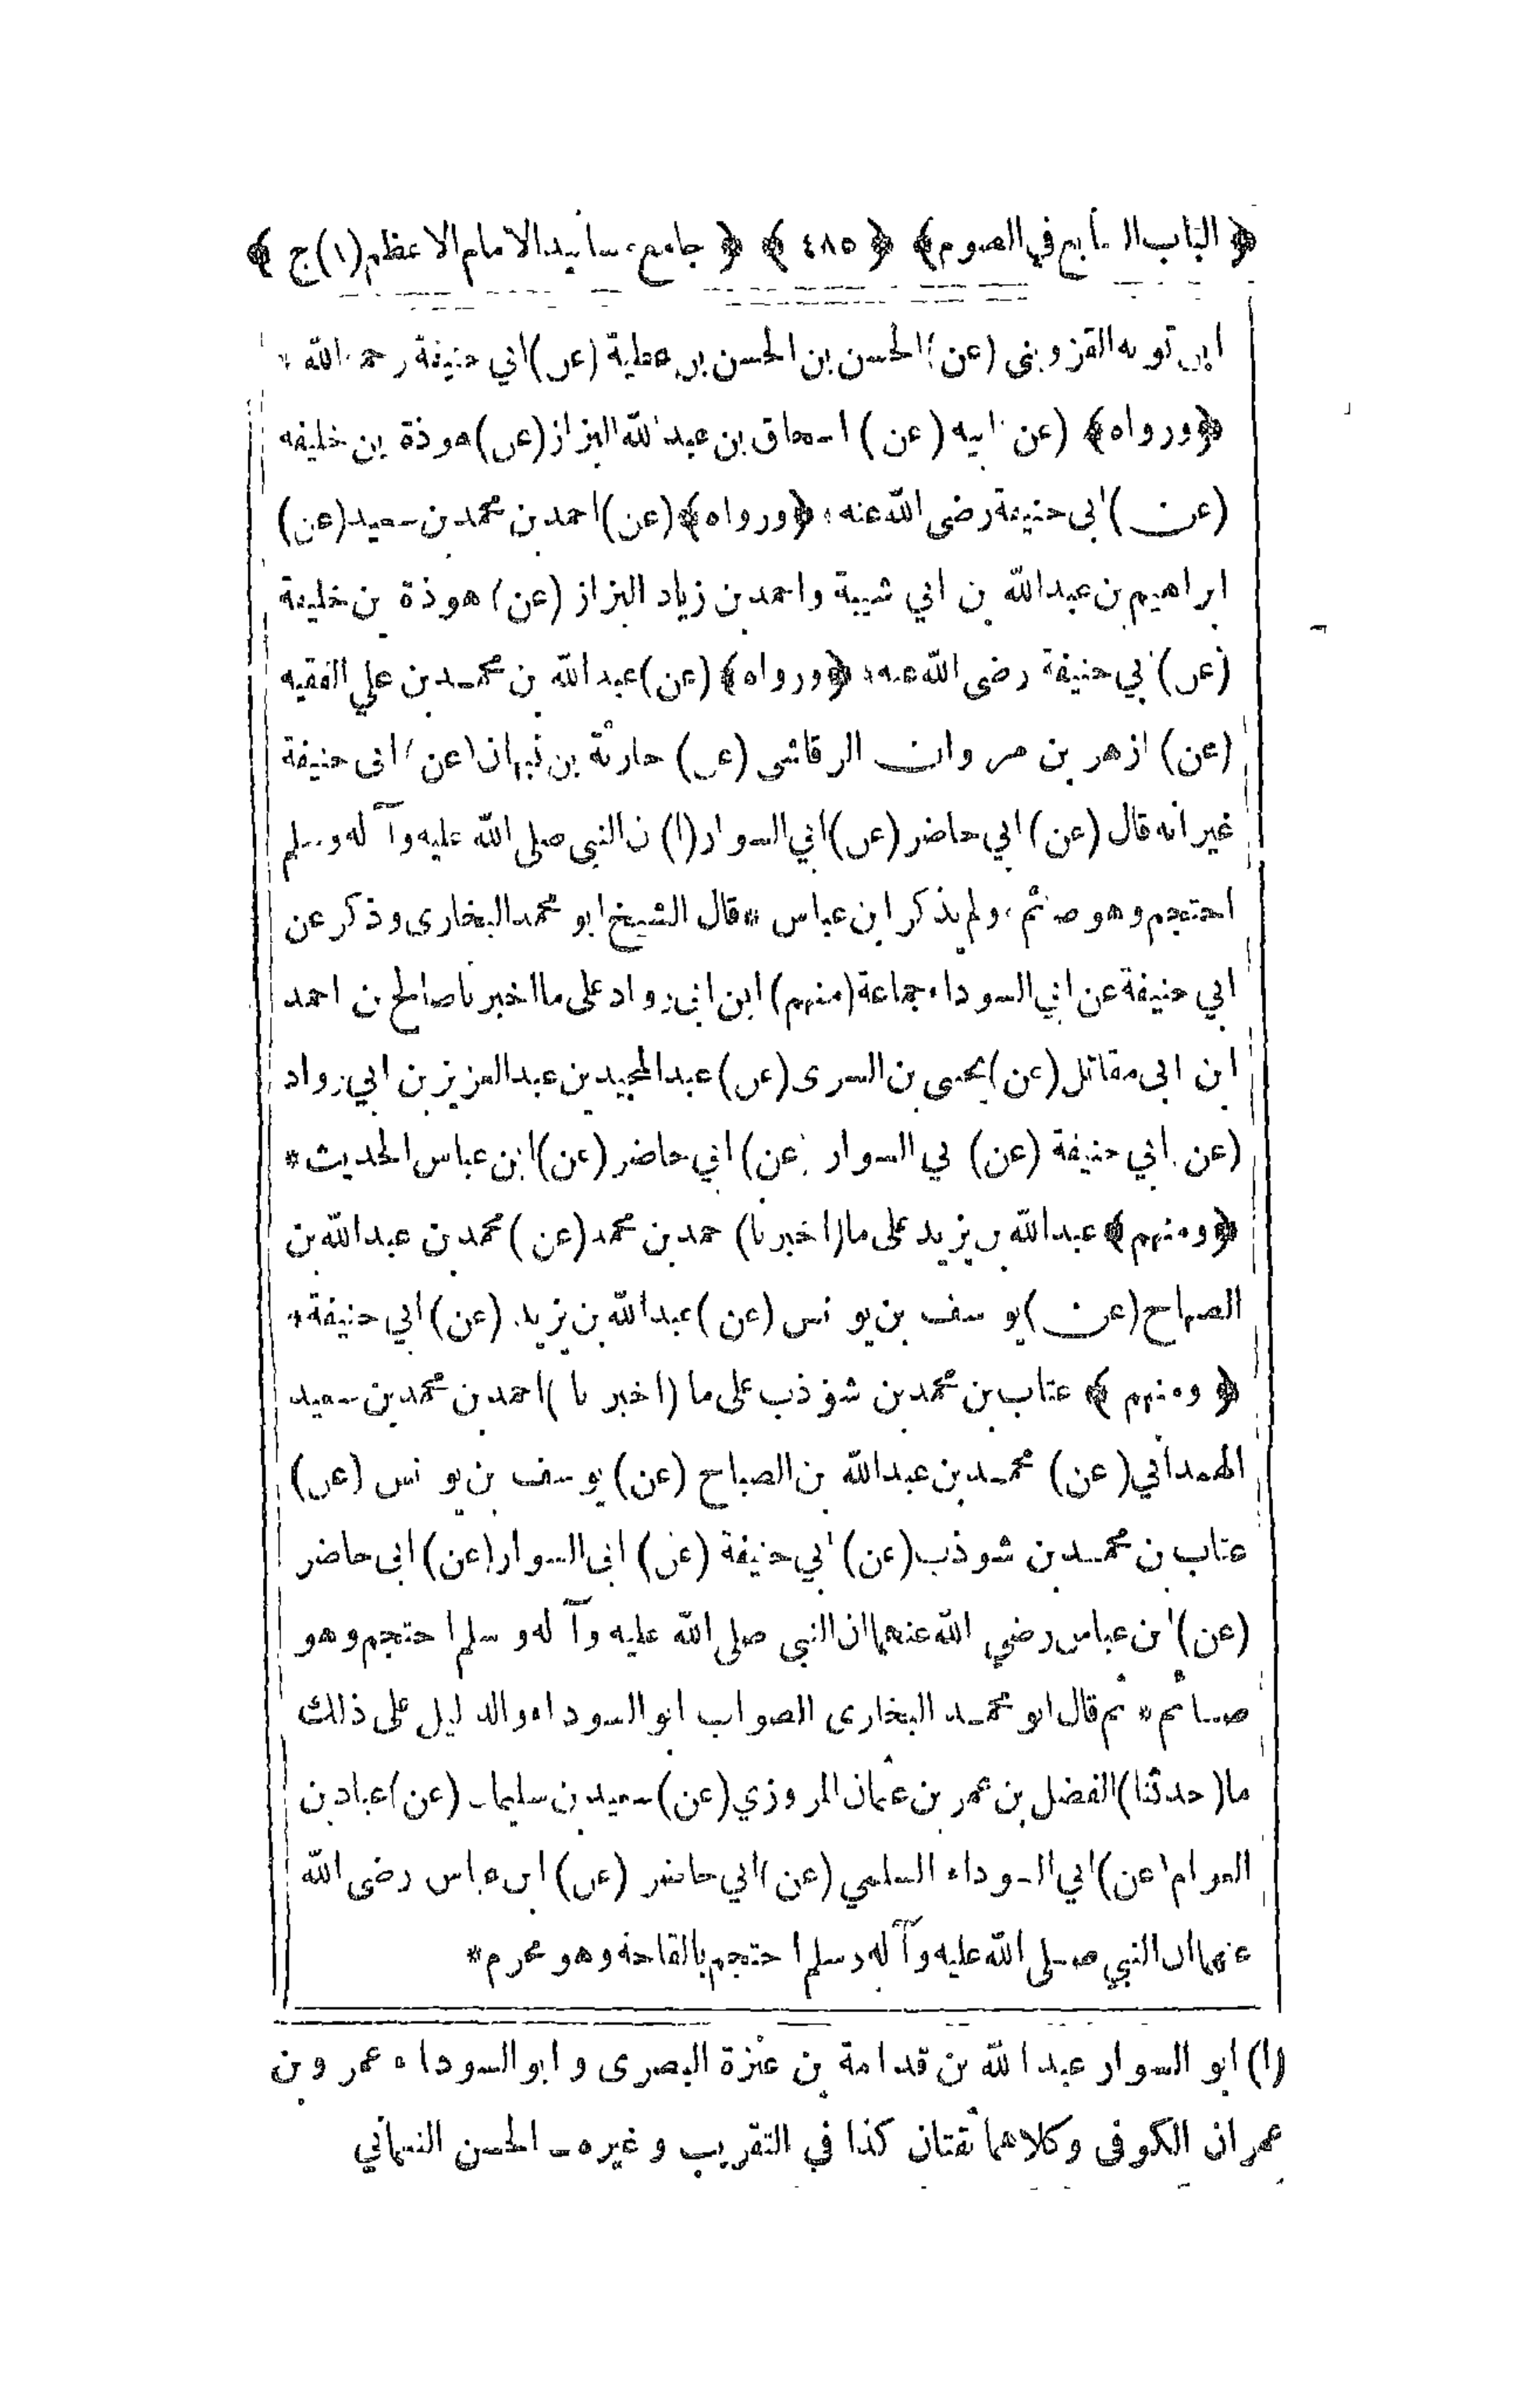 ﴿ الباب السابع في الصوم ﴾ ﴿ ٤٨٥ ﴾ ﴿ جامع مسانيد الامام الاعظم (١) ج ﴾
ابن توبه القزوينى (عن) الحسن بن الحسن بن عطية (عن) ابي حنيفة رحمه الله *
﴿ورواه﴾ (عن) ابيه (عن) اسحاق بن عبد الله البزاز (عن) هوذة بن خليفه
(عن) ابى حنيفة رضى الله عنه * ﴿ورواه﴾ (عن) احمد بن محمد بن سعيد (عن)
ابراهيم بن عبد الله بن ابي شيبة واحمد بن زياد البزاز (عن) هوذة بن خليفة
(عن) ابي حنيفة رضى الله عنه * ﴿ورواه﴾ (عن) عبد الله بن محمد بن علي الفقيه
(عن) ازهر بن مروان الرقاشى (عن) حارثة بن نبهان (عن) ابى حنيفة
غير انه قال (عن) ابي حاضر (عن) ابي السوار (ا) ن النبى صلى الله عليه وآله وسلم
احتجم وهو صائم، ولم يذكر ابن عباس * قال الشيخ ابو محمد البخارى وذكر عن
ابي حنيفة عن ابي السوداء جماعة (منهم) ابن ابى رواد على ما اخبرنا صالح بن احمد
ابن ابى مقاتل (عن) يحيى بن السرى (عن) عبد المجيد بن عبد العزيز بن ابي رواد
(عن) ابي حنيفة (عن) ابي السوار (عن) ابي حاضر (عن) ابن عباس الحديث *
﴿ومنهم﴾ عبد الله بن يزيد على ما (اخبرنا) احمد بن محمد (عن) محمد بن عبد الله بن
الصباح (عن) يوسف بن يونس (عن) عبد الله بن يزيد (عن) ابي حنيفة *
﴿ ومنهم ﴾ عتاب بن محمد بن شوذب على ما (اخبرنا) احمد بن محمد بن سعيد
الهمداني (عن) محمد بن عبد الله بن الصباح (عن) يوسف بن يونس (عن)
عتاب بن محمد بن شوذب (عن) ابي حنيفة (عن) ابى السوار (عن) ابى حاضر
(عن) ابن عباس رضي الله عنهما ان النبي صلى الله عليه وآله وسلم احتجم وهو
صائم * ثم قال ابو محمد البخارى الصواب ابو السوداء والدليل على ذلك
ما (حدثنا) الفضل بن عمر بن عثمان المروزي (عن) سعيد بن سليمان (عن) عباد بن
العوام (عن) ابي السوداء السلمي (عن) ابي حاضر (عن) ابن عباس رضى الله
عنهما ان النبي صلى الله عليه وآله وسلم احتجم بالقاحة وهو محرم *
(١) ابو السوار عبد الله بن قدامة بن عنزة البصرى وابو السوداء عمرو بن
عمران الكوفى وكلاهما ثقتان كذا في التقريب وغيره ـ الحسن النعماني